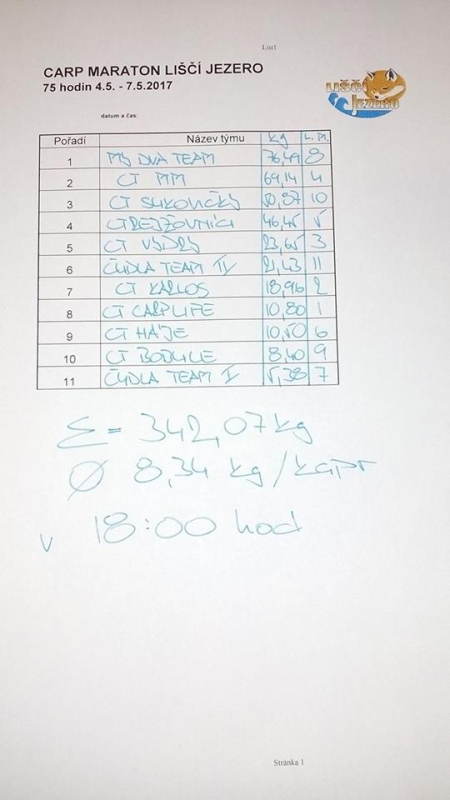 List1
CARP MARATON LIŠČÍ JEZERO
75 hodin 4.5. - 7.5.2017
LIŠČÍ
JEZERO
datum a čas:
Pořadí Název týmu kg L.M.
1 MY DVA TEAM 76,49 8
2 CT MM 69,14 4
3 CT SUKOVIČKY 50,87 10
4 5
5 CT VYDRY 23,65 3
6 ČUDLA TEAM II 21,43 11
7 CT KARLOS 18,96 2
8 CT CARPLIFE 10,80 1
9 CT HÁJE 10,50 6
10 CT 8,40 9
11 ČUDLA TEAM I 5,38 7
Σ = 342,07 kg
Ø 8,34 kg/kapr
v 18:00 hod
Stránka 1